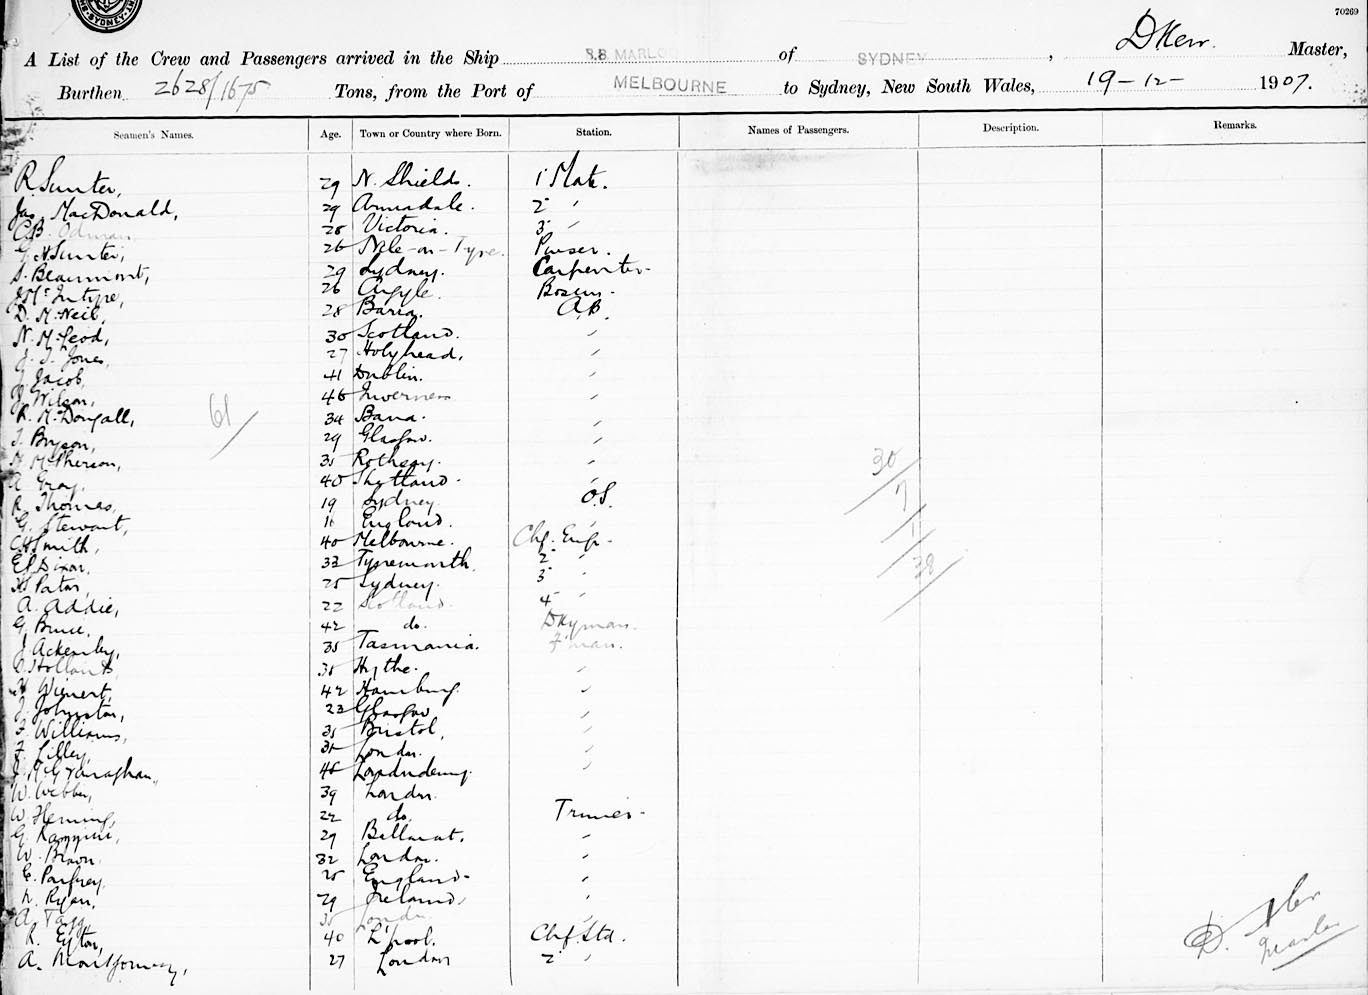 70269
A List of the Crew and Passengers arrived in the Ship S.S. MARLOO of SYDNEY, D Kerr. Master,
Burthen 2628/1675 Tons, from the Port of MELBOURNE to Sydney, New South Wales, 19-12- 1907.
Seamen's Names. Age. Town or Country where Born. Station. Names of Passengers. Description. Remarks.
R. Sunter, 29 N. Shields. 1 Mate.
Jas. MacDonald, 29 Armadale. 2 "
C.B. Odman 28 Victoria. 3 "
G. N Sunter, 26 Nle-on-Tyne. Purser.
S. Beaumont, 29 Sydney. Carpenter.
J. McIntyre, 26 Argyle. Bosun.
D. McNeil, 28 Barra. A.B.
N. McLeod, 30 Scotland. "
J. J. Jones, 27 Holyhead, "
J. Jacob, 41 Dublin. "
J. Wilson, 46 Inverness "
R. McDougall, 34 Barra. "
61
J. Bryson, 29 Glasgow. "
McPherson, 35 Rothsay. "
A Gray. 40 Shetland. "
R. Thomas, 19 Sydney O.S.
G. Stewart, England. "
C.H Smith, 40 Melbourne. Chf. Engr.
E.P Dixon, 33 Tynemouth 2 "
Paton, 25 Sydney. 3 "
A. Addie, 22 Scotland. 4 "
G. Bruce, 42 do. Dkyman.
J Ackenby, 35 Tasmania. F'man.
Hollands 35 Hythe. "
Wienert, 42 Hamburg. "
J. Johnston, 23 Glasgow "
F. Williams, 35 Bristol, "
F. Lilley, 35 London. "
46 Londonderry. "
W. Webber, 39 London.
W. Fleming, 22 do. Trimmer.
G. 29 Ballarat. "
W. Brown 32 London. "
E. Parfrey. 25 England. "
Ryan, 29 Ireland, "
A. Tagg 35 London "
R. Eyton, 40 L'pool. Chf. Std.
A. Montgomery, 27 London 2 "
30
7
1
38
D. Kerr
Master